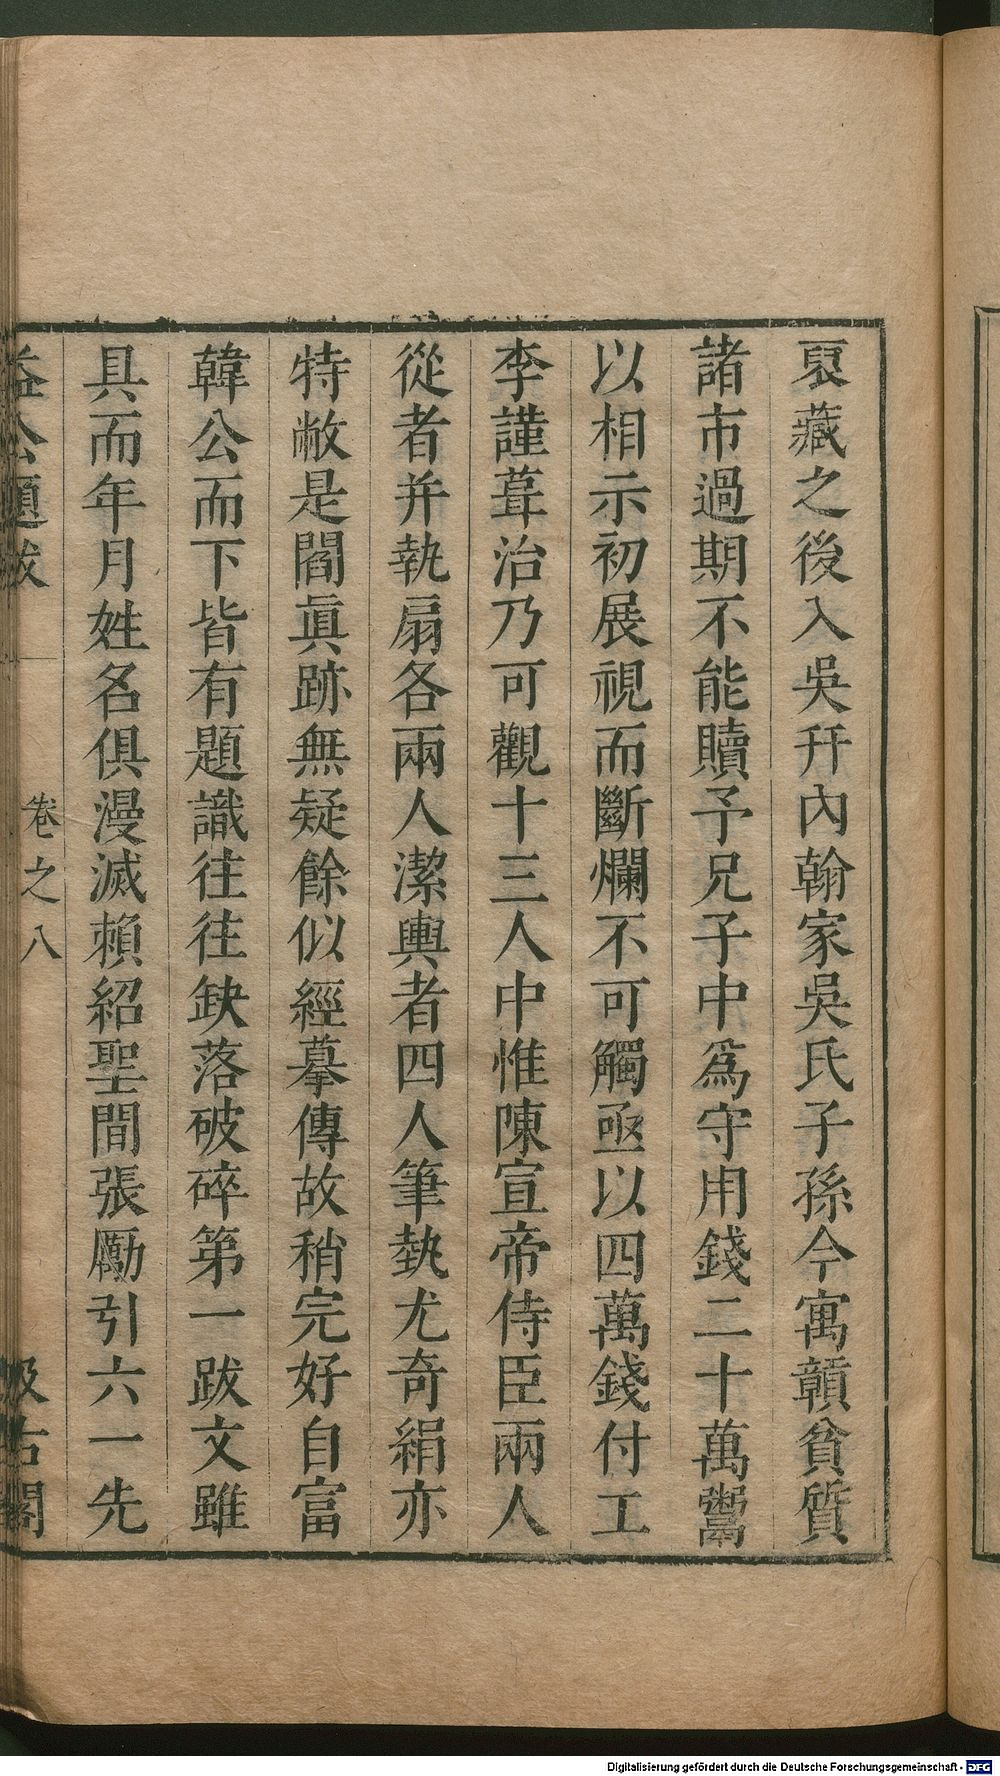 裒藏之後入吳幵內翰家吳氏子孫今寓贑貧質
諸市過期不能贖予兄子中爲守用錢二十萬鬻
以相示初展視而斷爛不可觸亟以四萬錢付工
李謹葺治乃可觀十三人中惟陳宣帝侍臣兩人
從者并執扇各兩人潔輿者四人筆埶尤奇絹亦
特敝是閻眞跡無疑餘似經摹傳故稍完好自富
韓公而下皆有題識往往缺落破碎第一跋文雖
具而年月姓名俱漫滅賴紹聖間張勵引六一先
益公題跋 卷之八 汲古閣
Digitalisierung gefördert durch die Deutsche Forschungsgemeinschaft - DFG